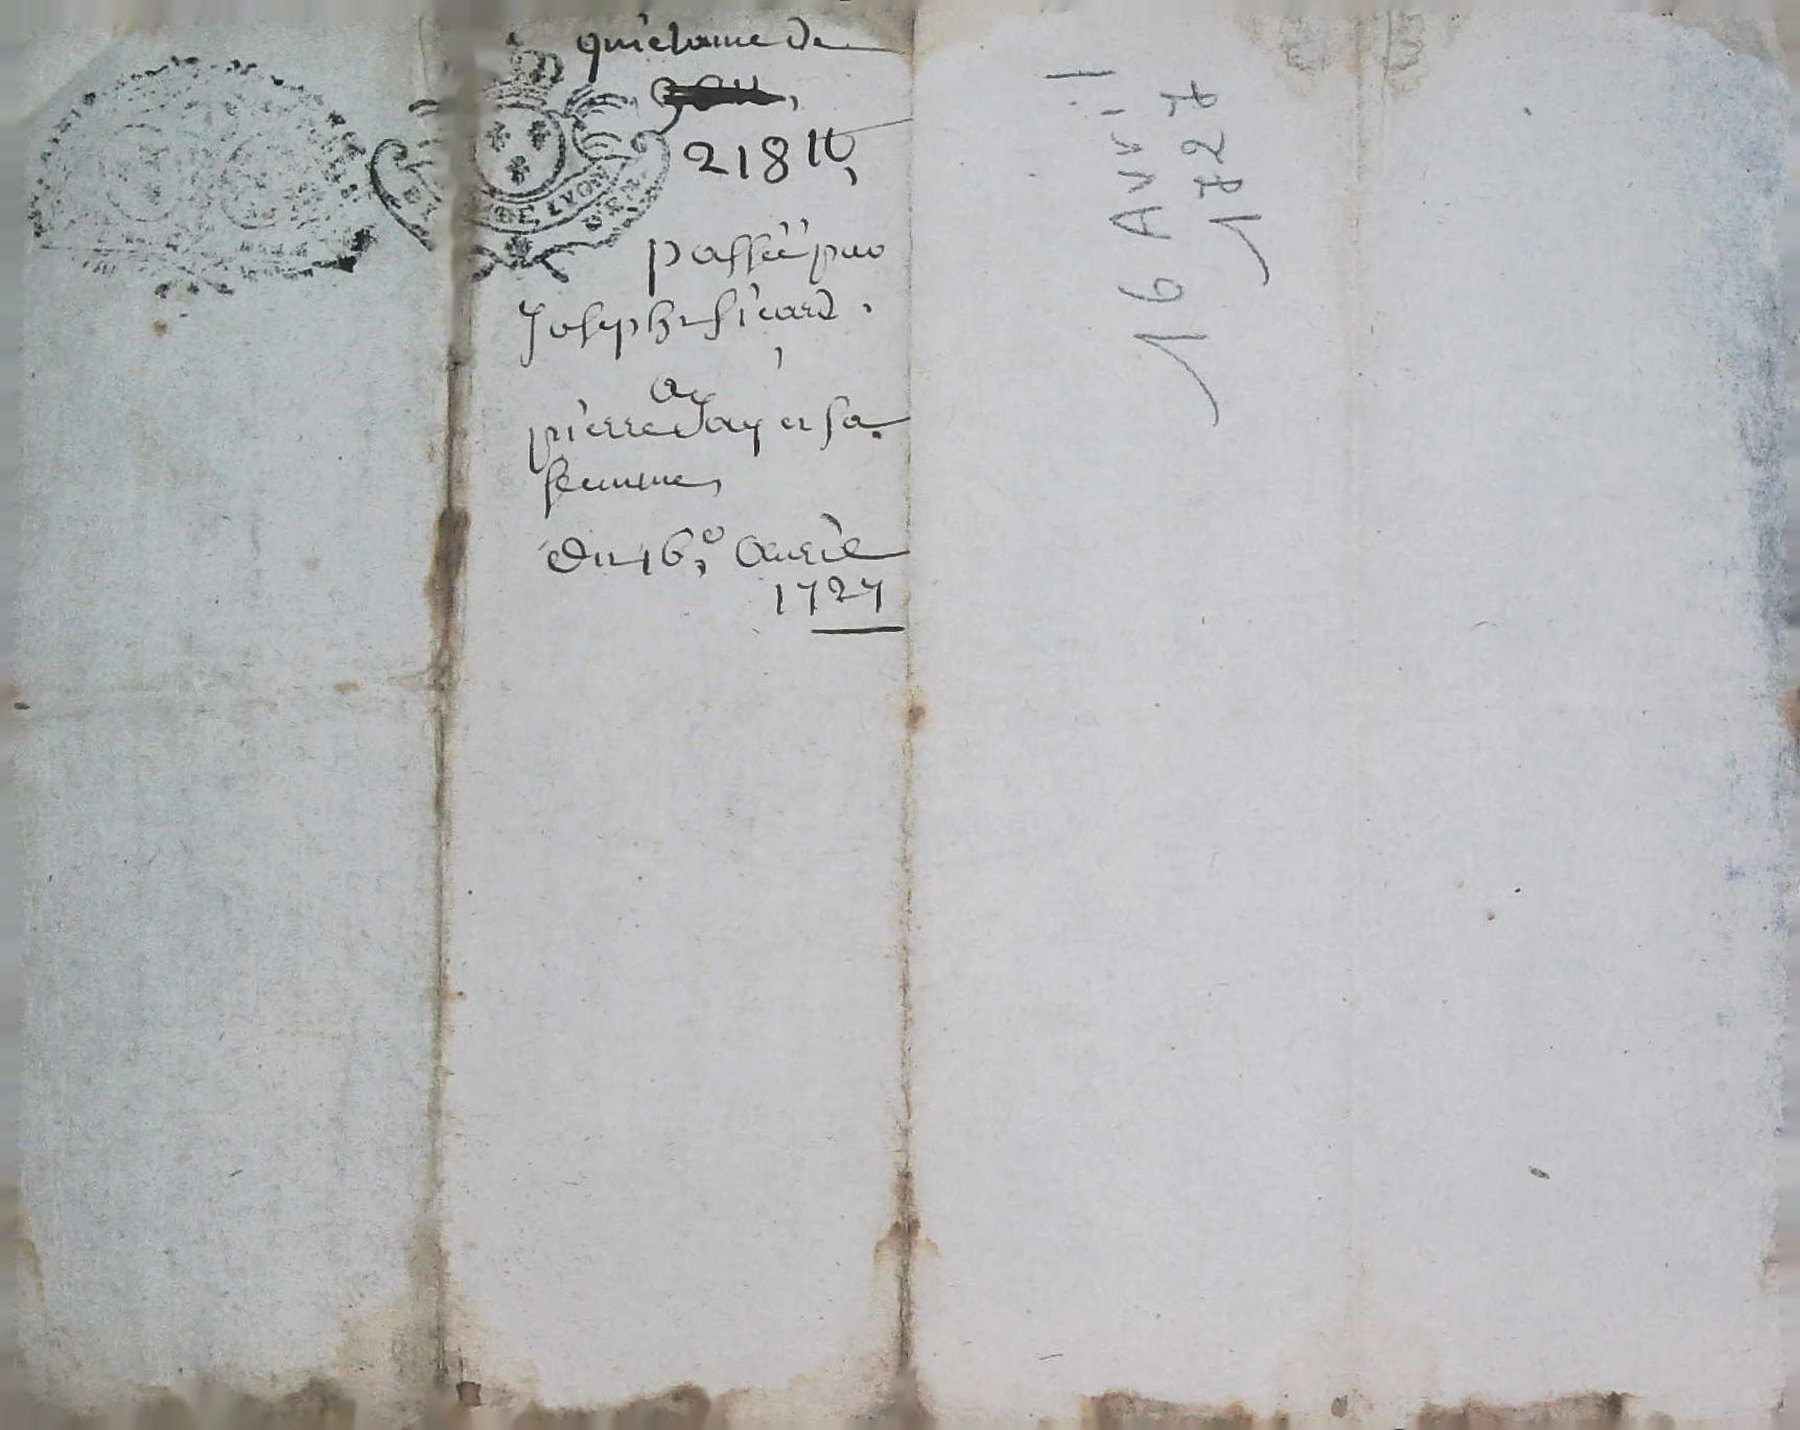 quictance de
218 ₶,
passée par
Joseph Sicard,
a
pierre Jay et sa
femme,
du 16.e Avril
1727
DE LYON
GEN
16 Avril
1727